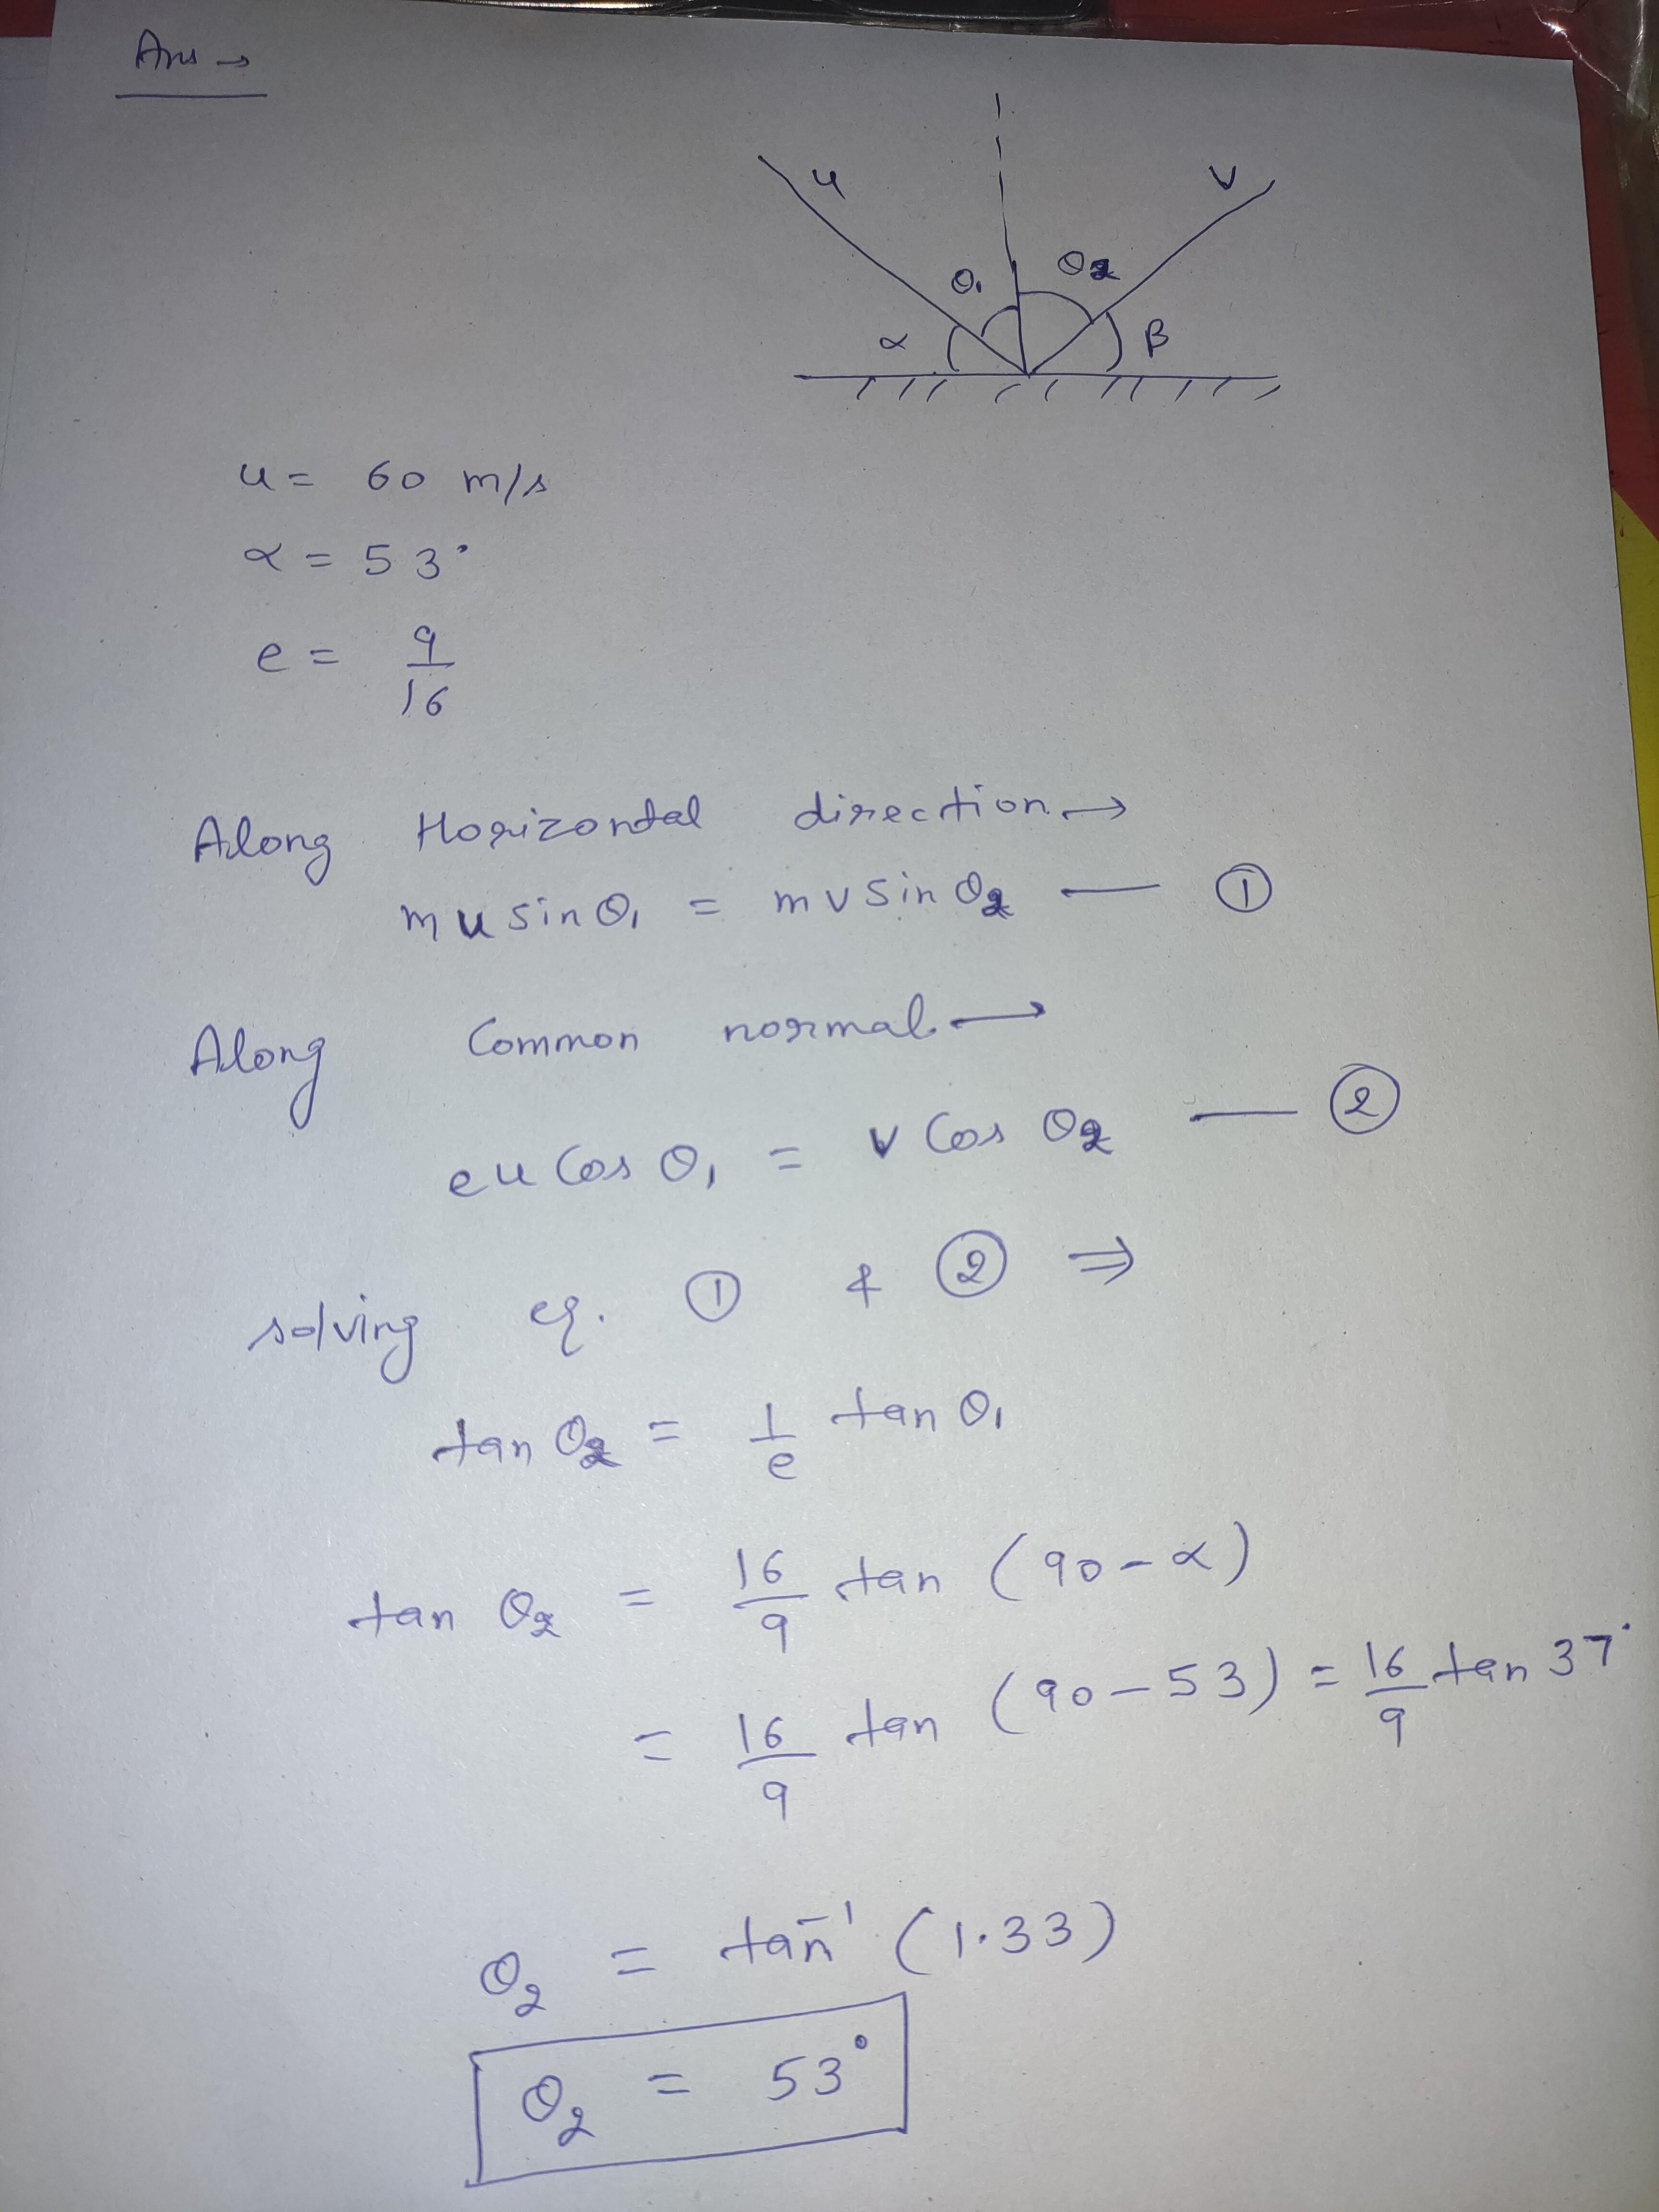 Ans →
u v
θ₁ θ₂
α β
u = 60 m/s
α = 53°
e = 9/16
Along Horizontal direction →
mu sin θ₁ = mv sin θ₂ — ①
Along Common normal →
eu Cos θ₁ = v Cos θ₂ — ②
solving eq. ① & ② ⇒
tan θ₂ = 1/e tan θ₁
tan θ₂ = 16/9 tan (90-α)
= 16/9 tan (90-53) = 16/9 tan 37°
θ₂ = tan⁻¹ (1.33)
θ₂ = 53°